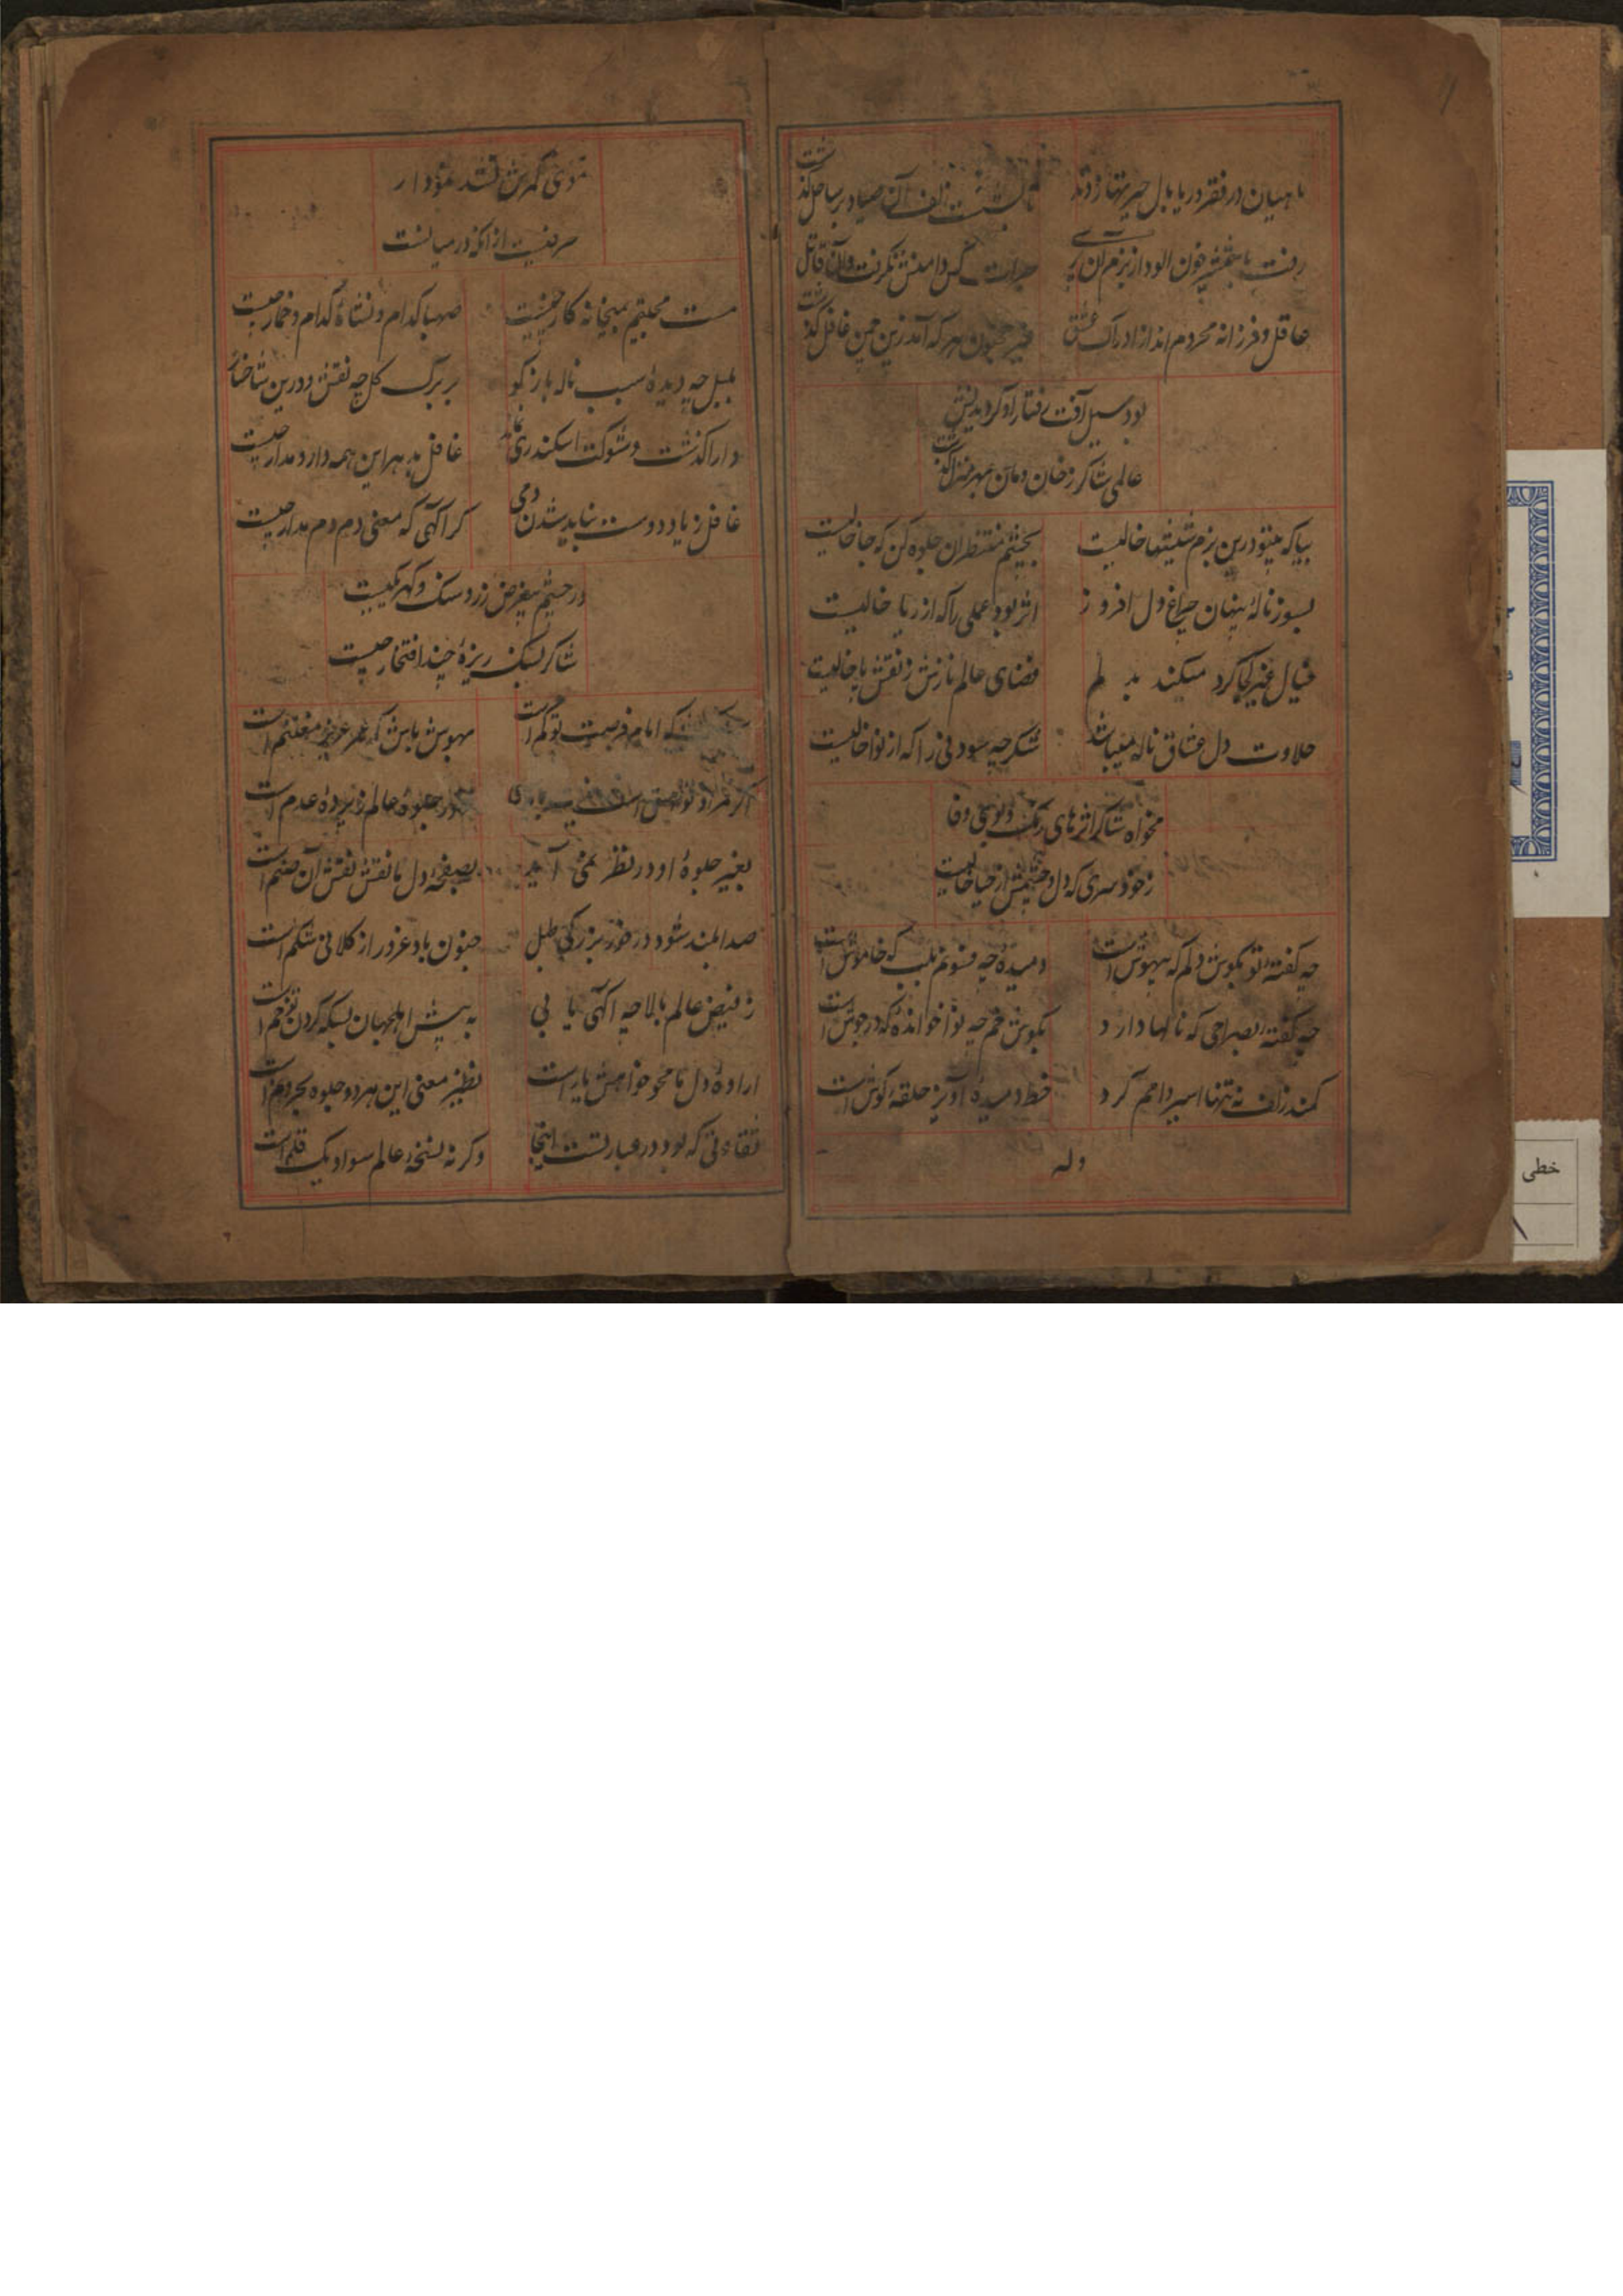 ماهیان در قعر دریا بال حیرتها زدند
تا شست زلف آن صیاد بر ساحل گذشت
رفت با شمشیر خون الود از بزم آن پری
جرات کس دامنش نگرفت و آن قاتل گذشت
عاقل و فرزانه محروم اند از ادراک عشق
غیر مجنون هر که آمد زین چمن غافل گذشت
بود سیل آفت رفتار او گردیدنش
عالمی شاکر ز خان و مان بهر منزل گذشت
بیا که بیتو درین بزم شیشها خالیست
بچشم منتظران جلوه کن که جا خالیست
بسوز نالهٔ پنهان چراغ دل افروز
اثر بود عملی را که از ریا خالیست
خیال غیر کجا گرد میکند بدلم
فضای عالم نازش ز نقش پا خالیست
حلاوت دل عشاق ناله میباشد
شکر چه سود نی را که از نوا خالیست
مخواه شاکر اثرهای رنگ و بوی وفا
ز خود سری که دل و چشمش از حیا خالیست
چه گفتهٔ تو بگوش دلم که بیهوش است
دمیدهٔ چه فسونم بلب که خاموش است
چه گفتهٔ بصراحی که نالها دارد
بگوش خم چه نوا خواندهٔ که در جوش است
کمند زلف نه تنها اسیر دامم کرد
خط دمیدهٔ آویز حلقهٔ گوش است
وله
موی کمرش نشد نمودار
حرفیست از انکه در میانست
مست محبتیم بمیخانه کار چیست
صهبا کدام و نشاهٔ کدام و خمار چیست
بلبل چه دیدهٔ سبب ناله باز گو
بر برگ گل چه نقش و درین شاخسار
دارا گذشت و شوکت اسکندری نماند
غافل بدهر این همه دار و مدار چیست
غافل ز یاد دوست نباید شدن دمی
گر آگهی که معنی دم دم مدار چیست
در چشم بیغرض زر و سنگ و گهر یکیست
شاکر بسنگ ریزهٔ چند افتخار چیست
که ایام فرصت تو کم است
بهوش باش که عمر عزیز مغتنم است
اگر مراد تو
جلوهٔ عالم پردهٔ عدم است
بغیر جلوهٔ او در نظر نمی آید
بصفحهٔ دل ما نقش نقش آن صنم است
صدا بلند شود در خور بزرگی طبل
جنون باد غرور از کلانی شکم است
ز فیض عالم بالا چه آگهی یابی
به پیش اهل جهان بسکه گردن تو خم است
ارادهٔ دل ما محو خواهش یار است
نظیر معنی این هر دو جلوه بحر و نم است
تفاوتی که بود در عبارتست اینجا
وگرنه نسخهٔ عالم سواد یک قلم است
خطی